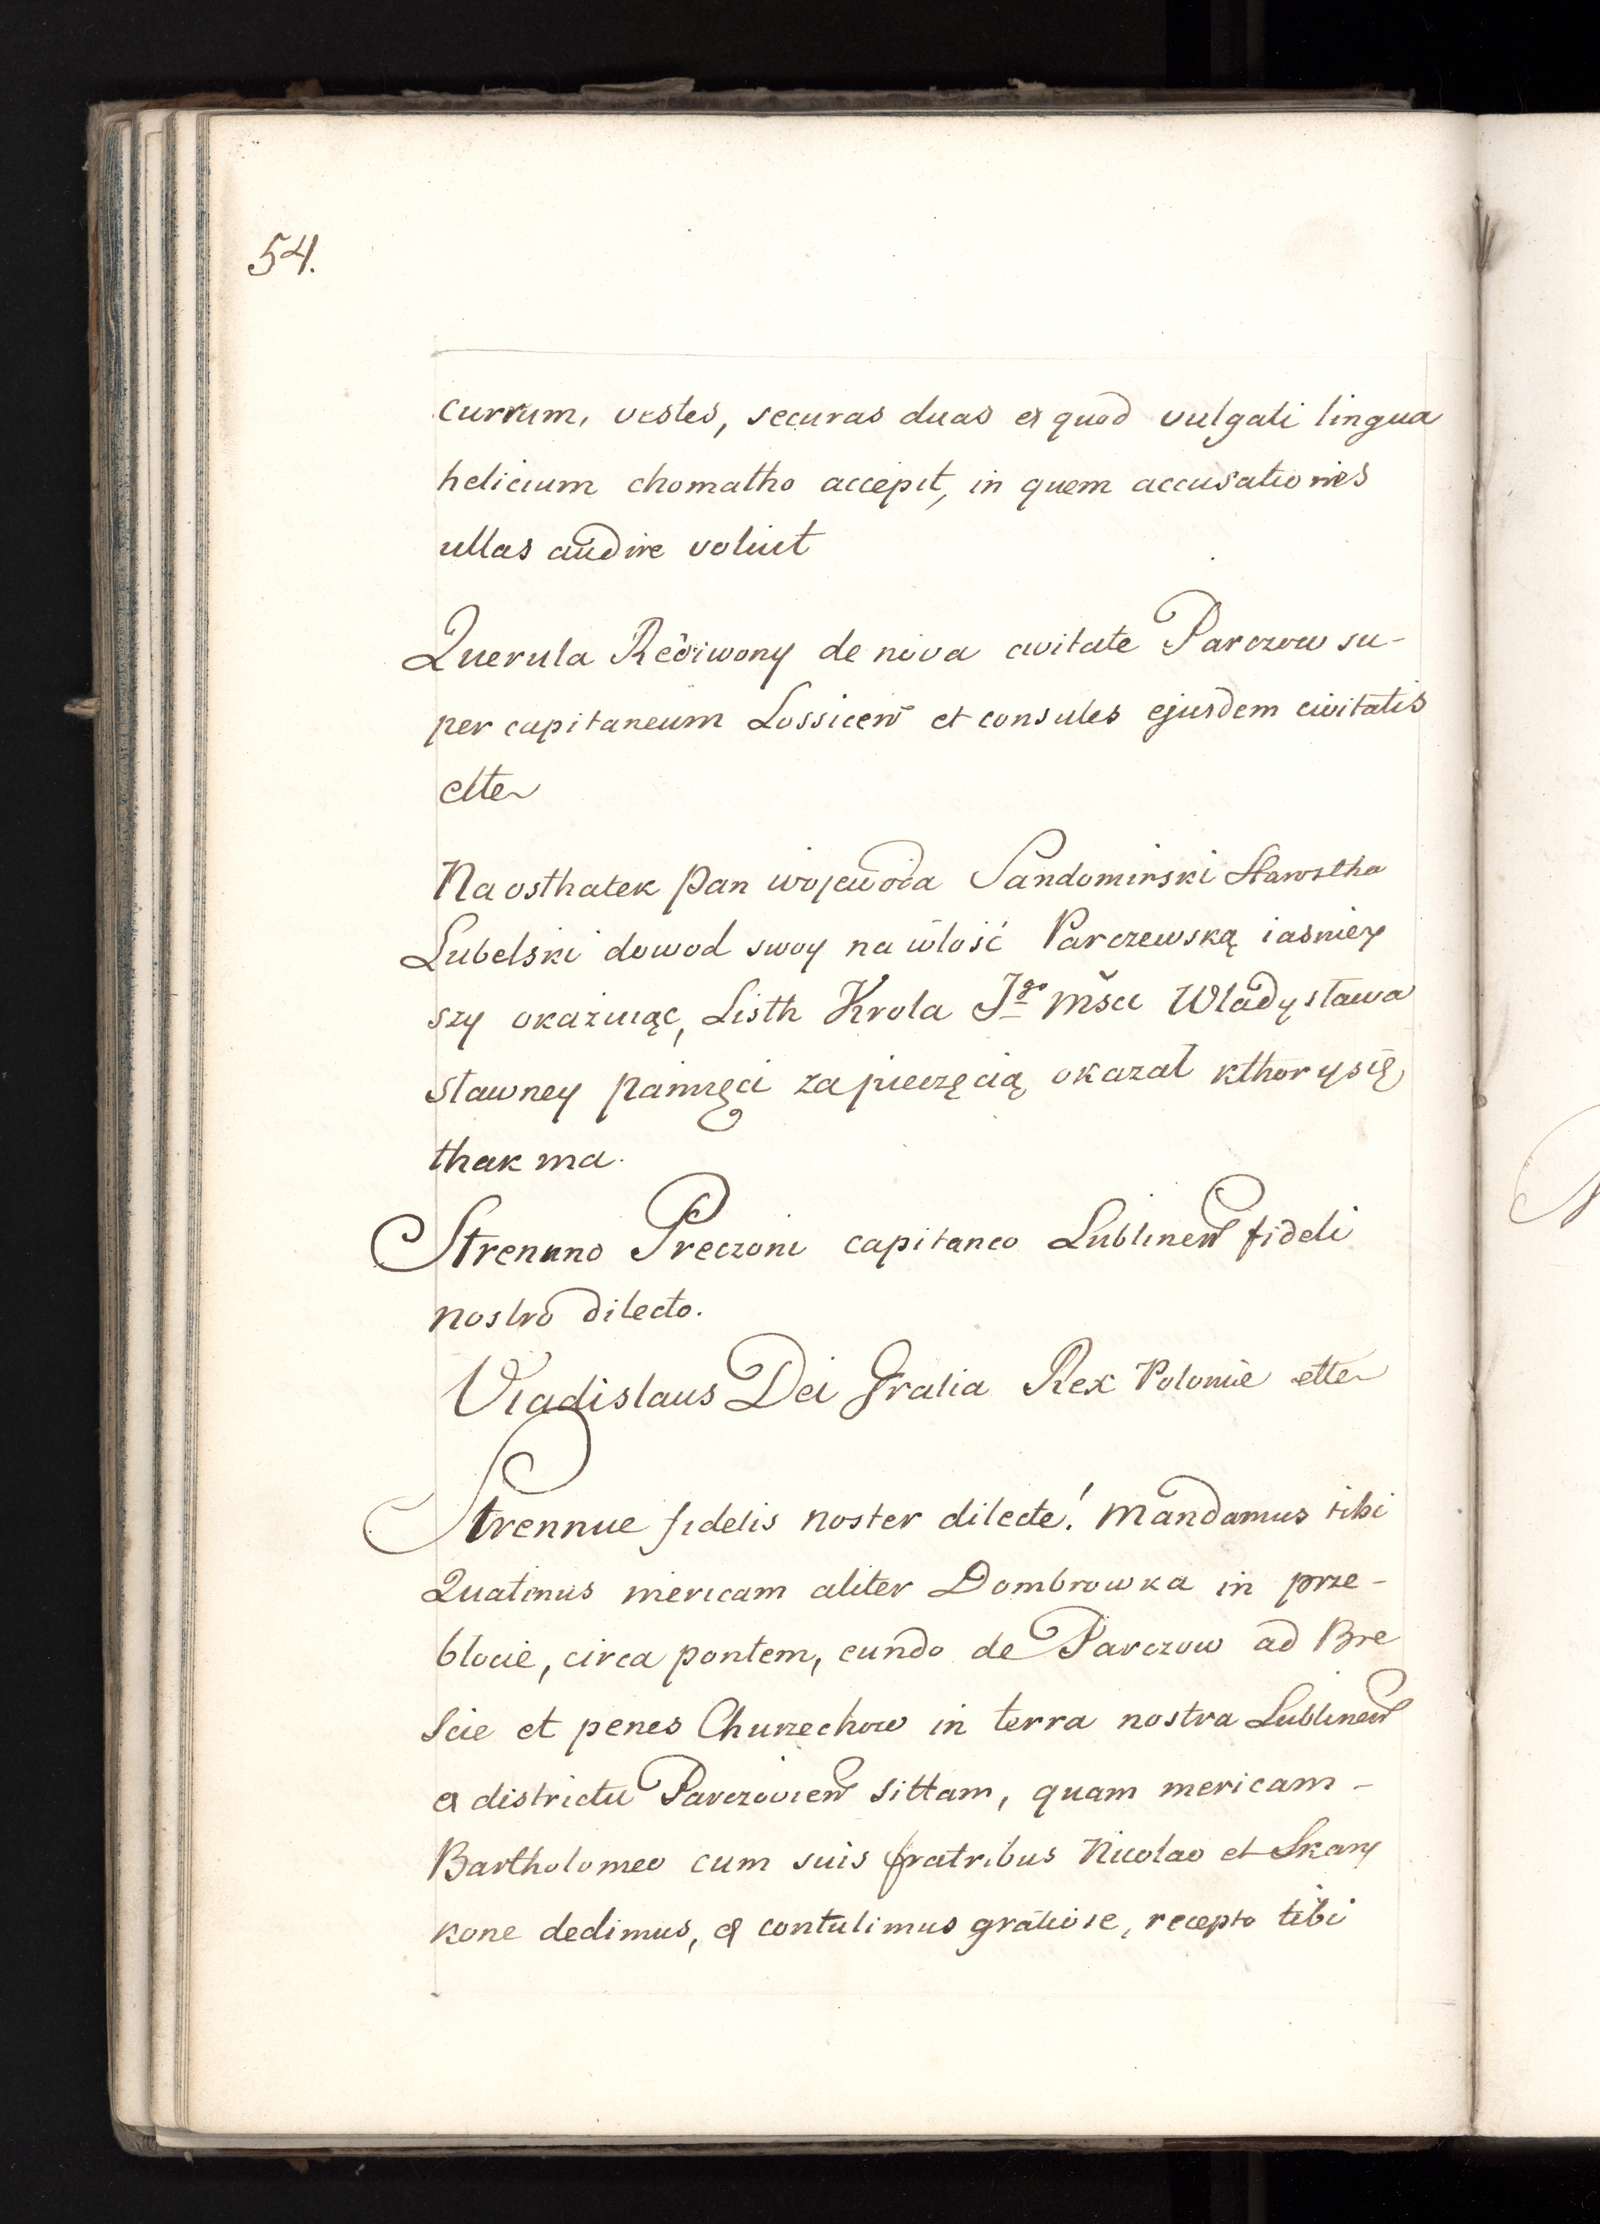 54.
currum, vestes, securas duas et quod vulgali lingua
helicium chomatho accepit, in quem accusationes
ullas audire voluit
Querula de nova civitate Parczow su-
per capitaneum Lossicen̄ et consules ejusdem civitatis
ette
Na osthatek pan wojewoda Sandomirski Starostha
Lubelski dowod swoy na wlość Parczewską iasniey
szy okazuiąc, Listh Krola Jgo Mści Wladysława
sławney pamięci za pieczęcią okazał kthory się
thak ma.
Strenuno Preczoni capitaneo Lublinen̄ fideli
nostro dilecto.
Vladislaus Dei Gratia Rex Polonie ette
Strennue fidelis noster dilecte! Mandamus tibi
Quatinus mericam aliter Dombrowka in prze-
blocie, circa pontem, eundo de Parczow ad Bre
scie et penes Chunechow in terra nostra Lublinen̄
et districtu Parczovien̄ sittam, quam mericam -
Bartholomeo cum suis fratribus Nicolao et Skary
kone dedimus, et contulimus gratiose, recepto tibi